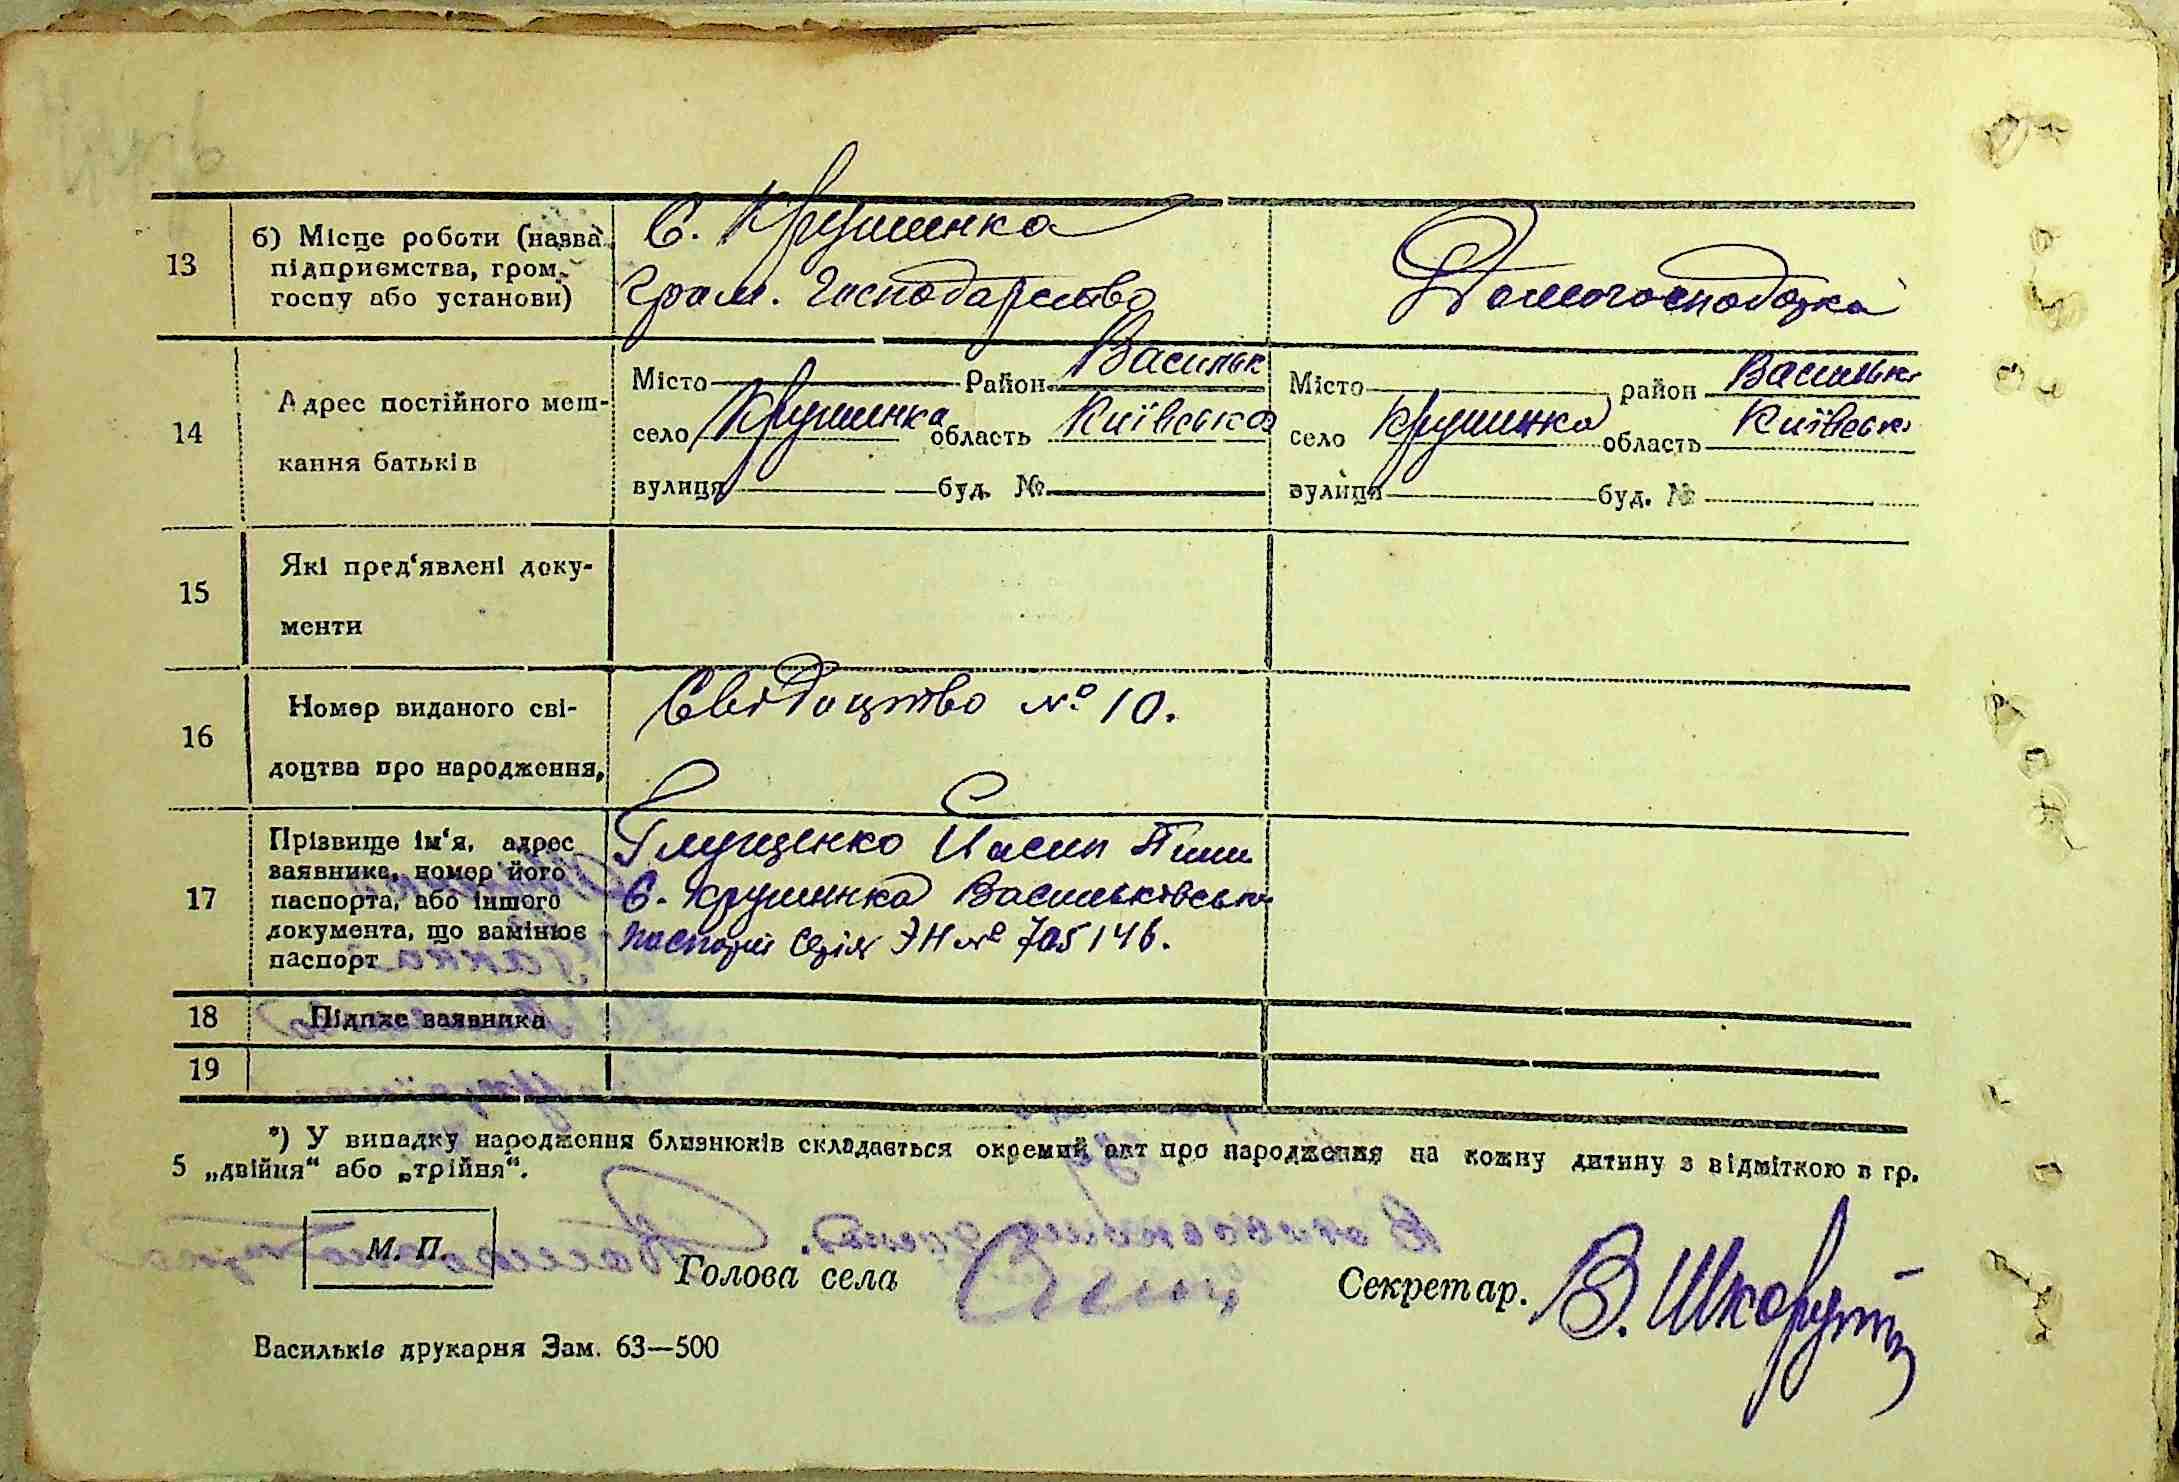 13
б) Місце роботи (назва
підприємства, гром.
госпу або установи)
С. Крушинка
Гром. Господарство
Домогосподарка
14
Адрес постійного меш-
кання батьків
Місто Район Васильк
село Крушинка область Київська
вулиця буд. №
Місто район Васильк
село Крушинка область Київськ
вулиця буд. №
15
Які пред‘явлені доку-
менти
16
Номер виданого сві-
доцтва про народження,
Свідоцтво № 10.
17
Прізвище ім‘я, адрес
заявника, номер його
паспорта, або іншого
документа, що замінює
паспорт
Глущенко Йосип
С. Крушинка Васильківськ
паспорт серія ЭН № 705146.
18
Підпис заявника
19
*) У випадку народження близнюків складається окремий акт про народження на кожну дитину з відміткою в гр.
5 „двійня“ або „трійня“.
М. П.
Голова села
Секретар.
В. Шкорупа
Васильків друкарня Зам. 63—500